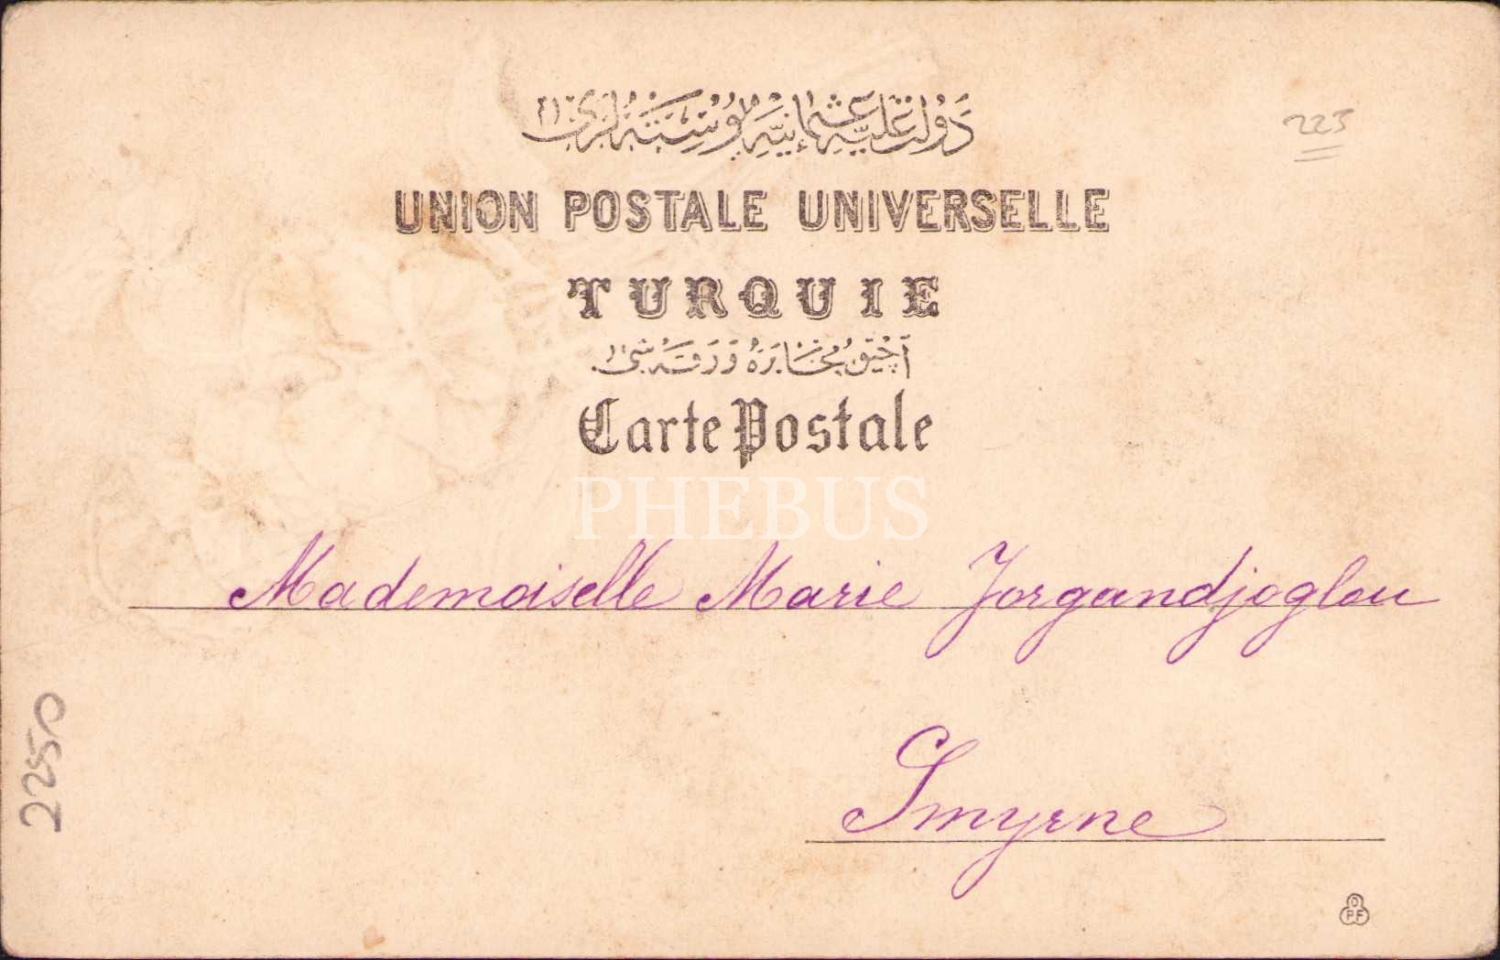 دولت علیه عثمانیه پوسته لری
223
UNION POSTALE UNIVERSELLE
TURQUIE
آچیق مخابره ورقه سی
Carte Postale
PHEBUS
Mademoiselle Marie Jorgandjoglou
Smyrne
2250
O
PF